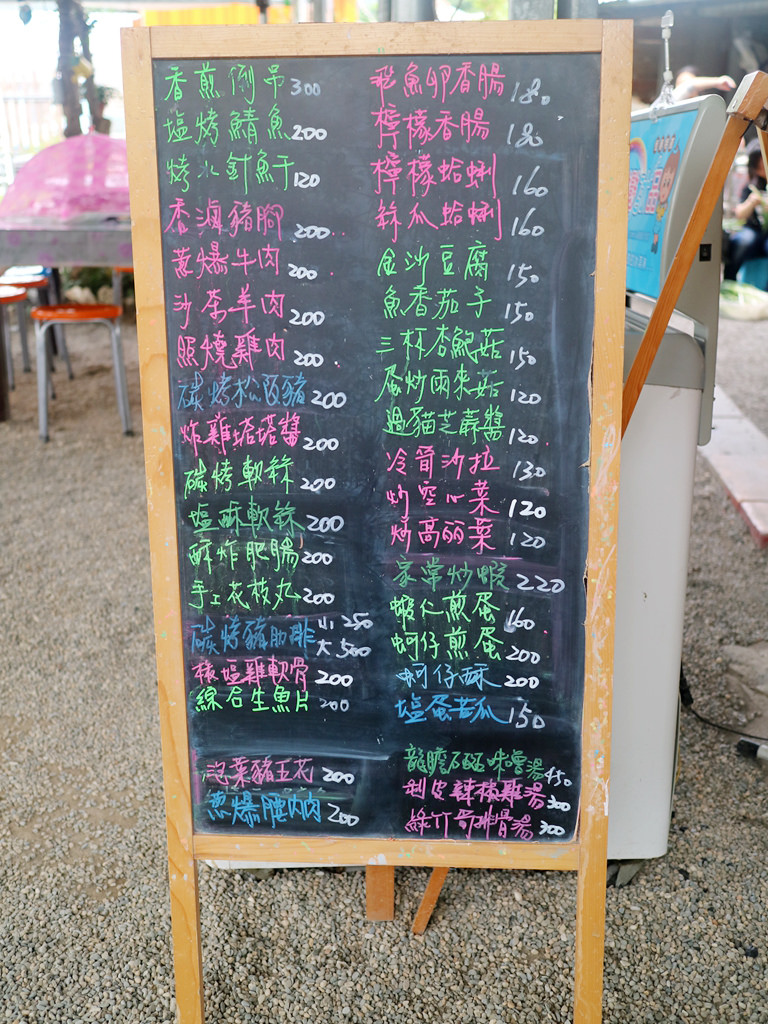 香煎倒吊 300
塩烤鯖魚 200
烤水針魚干 120
香滷豬腳 200
蔥爆牛肉 200
沙茶羊肉 200
照燒雞肉 200
碳烤松阪豬 200
炸雞塔塔醬 200
碳烤軟絲 200
塩酥軟絲 200
酥炸肥腸 200
手工花枝丸 200
碳烤豬肋排 小 250
大 500
椒塩雞軟骨 200
綜合生魚片 200
泡菜豬五花 200
蔥爆腰內肉 200
飛魚卵香腸 180
檸檬香腸 180
檸檬蛤蜊 160
絲瓜蛤蜊 160
金沙豆腐 150
魚香茄子 150
三杯杏鮑菇 150
蛋炒雨來菇 120
過貓芝蔴醬 120
冷筍沙拉 130
炒空心菜 120
炒高麗菜 120
家常炒蝦 220
蝦仁煎蛋 160
蚵仔煎蛋 200
蚵仔酥 200
塩蛋苦瓜 150
龍膽石斑味噌湯 450
剝皮辣椒雞湯 300
綠竹筍排骨湯 300